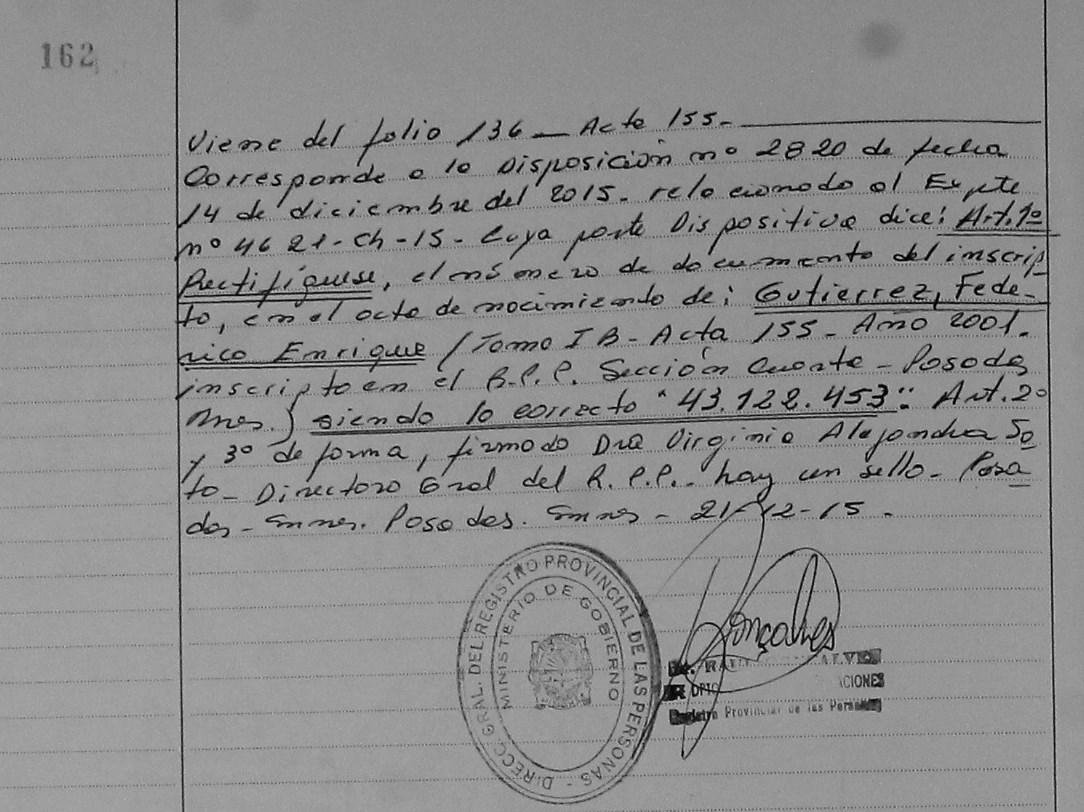 162
Viene del folio 136 — Acta 155.-
Corresponde a la Disposición nº 2820 de fecha
14 de diciembre del 2015. relacionado al Expte
nº 4621-Ch-15- Cuya parte Dispositiva dice: Art.1º
Rectifíquese, el número de documento del inscrip-
to, en el acta de nacimiento de: Gutierrez, Fede-
rico Enrique / Tomo I B - Acta 155 - Año 2001.
inscripto en el R.P.P. Sección Cuarta - Posadas
Mnes.) siendo lo correcto "43.122.453": Art.2º
y 3º de forma, firmado Dra Virginia Alejandra So
to - Directora Gral del R.P.P.- hay un sello - Posa
das - Mnes. Posadas. Mnes - 21-12-15.
DIRECC. GRAL. DEL REGISTRO PROVINCIAL DE LAS PERSONAS -
MINISTERIO DE GOBIERNO
Gonçalves
DPTO
CIONES
Registro Provincial de las Personas